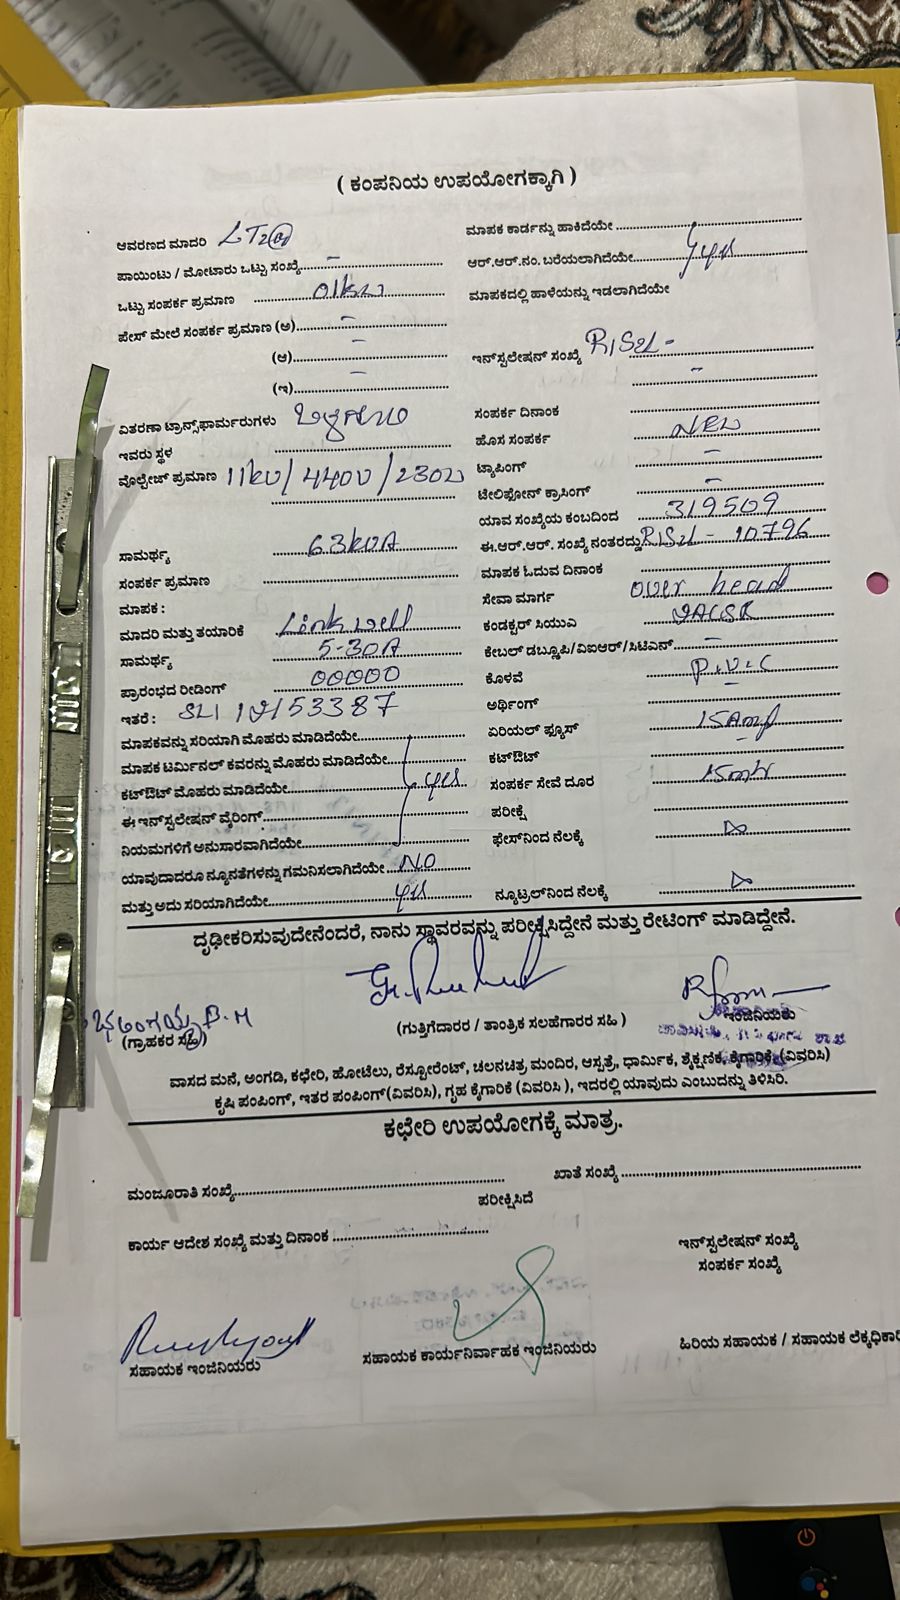 ( ಕಂಪನಿಯ ಉಪಯೋಗಕ್ಕಾಗಿ )
ಆವರಣದ ಮಾದರಿ LT2(a)
ಪಾಯಿಂಟು / ಮೋಟಾರು ಒಟ್ಟು ಸಂಖ್ಯೆ........ –
ಒಟ್ಟು ಸಂಪರ್ಕ ಪ್ರಮಾಣ 01kw
ಪೇಸ್ ಮೇಲೆ ಸಂಪರ್ಕ ಪ್ರಮಾಣ (ಅ)........ –
(ಆ)........ –
(ಇ)........ –
ವಿತರಣಾ ಟ್ರಾನ್ಸ್‌ಫಾರ್ಮರುಗಳು
ಇವರು ಸ್ಥಳ
ವೊಲ್ಟೇಜ್ ಪ್ರಮಾಣ 11kv/440v/230v
ಸಾಮರ್ಥ್ಯ 63kVA
ಸಂಪರ್ಕ ಪ್ರಮಾಣ
ಮಾಪಕ :
ಮಾದರಿ ಮತ್ತು ತಯಾರಿಕೆ Linkwell
ಸಾಮರ್ಥ್ಯ 5-30A
ಪ್ರಾರಂಭದ ರೀಡಿಂಗ್ 00000
ಇತರೆ : 153387
ಮಾಪಕವನ್ನು ಸರಿಯಾಗಿ ಮೊಹರು ಮಾಡಿದೆಯೇ........
ಮಾಪಕ ಟರ್ಮಿನಲ್ ಕವರನ್ನು ಮೊಹರು ಮಾಡಿದೆಯೇ........
ಕಟ್‌ಔಟ್ ಮೊಹರು ಮಾಡಿದೆಯೇ........ yes
ಈ ಇನ್‌ಸ್ಟಲೇಷನ್ ವೈರಿಂಗ್........
ನಿಯಮಗಳಿಗೆ ಅನುಸಾರವಾಗಿದೆಯೇ........
ಯಾವುದಾದರೂ ನ್ಯೂನತೆಗಳನ್ನು ಗಮನಿಸಲಾಗಿದೆಯೇ.. NO
ಮತ್ತು ಅದು ಸರಿಯಾಗಿದೆಯೇ........ yes
ಮಾಪಕ ಕಾರ್ಡನ್ನು ಹಾಕಿದೆಯೇ ........
ಆರ್.ಆರ್.ನಂ. ಬರೆಯಲಾಗಿದೆಯೇ........ yes
ಮಾಪಕದಲ್ಲಿ ಹಾಳೆಯನ್ನು ಇಡಲಾಗಿದೆಯೇ
ಇನ್‌ಸ್ಟಲೇಷನ್ ಸಂಖ್ಯೆ
–
ಸಂಪರ್ಕ ದಿನಾಂಕ
ಹೊಸ ಸಂಪರ್ಕ NEW
ಟ್ಯಾಪಿಂಗ್ –
ಟೇಲಿಫೋನ್ ಕ್ರಾಸಿಂಗ್ –
ಯಾವ ಸಂಖ್ಯೆಯ ಕಂಬದಿಂದ 319509
ಈ.ಆರ್.ಆರ್. ಸಂಖ್ಯೆ ನಂತರದ್ದು - 10796
ಮಾಪಕ ಓದುವ ದಿನಾಂಕ
ಸೇವಾ ಮಾರ್ಗ over head
ಕಂಡಕ್ಟರ್ ಸಿಯುಎ
ಕೇಬಲ್ ಡಬ್ಲೂಪಿ/ವಿಐಆರ್/ಸಿಟಿಎಸ್........ –
ಕೊಳವೆ P.V.C
ಅರ್ಥಿಂಗ್ –
ಏರಿಯಲ್ ಫ್ಯೂಸ್ 15Amp
ಕಟ್‌ಔಟ್ –
ಸಂಪರ್ಕ ಸೇವೆ ದೂರ 15mtr
ಪರೀಕ್ಷೆ
ಫೇಸ್‌ನಿಂದ ನೆಲಕ್ಕೆ ∞
ನ್ಯೂಟ್ರಲ್‌ನಿಂದ ನೆಲಕ್ಕೆ ∞
ದೃಢೀಕರಿಸುವುದೇನೆಂದರೆ, ನಾನು ಸ್ಥಾವರವನ್ನು ಪರೀಕ್ಷಿಸಿದ್ದೇನೆ ಮತ್ತು ರೇಟಿಂಗ್ ಮಾಡಿದ್ದೇನೆ.
(ಗ್ರಾಹಕರ ಸಹಿ) (ಗುತ್ತಿಗೆದಾರರ / ತಾಂತ್ರಿಕ ಸಲಹೆಗಾರರ ಸಹಿ ) ಇಂಜಿನಿಯರು
ವಾಸದ ಮನೆ, ಅಂಗಡಿ, ಕಛೇರಿ, ಹೋಟೆಲು, ರೆಸ್ಟೋರೆಂಟ್, ಚಲನಚಿತ್ರ ಮಂದಿರ, ಆಸ್ಪತ್ರೆ, ಧಾರ್ಮಿಕ, ಶೈಕ್ಷಣಿಕ, ಕೈಗಾರಿಕೆ (ವಿವರಿಸಿ)
ಕೃಷಿ ಪಂಪಿಂಗ್, ಇತರ ಪಂಪಿಂಗ್ (ವಿವರಿಸಿ), ಗೃಹ ಕೈಗಾರಿಕೆ (ವಿವರಿಸಿ ), ಇದರಲ್ಲಿ ಯಾವುದು ಎಂಬುದನ್ನು ತಿಳಿಸಿರಿ.
ಕಛೇರಿ ಉಪಯೋಗಕ್ಕೆ ಮಾತ್ರ.
ಮಂಜೂರಾತಿ ಸಂಖ್ಯೆ........ ಖಾತೆ ಸಂಖ್ಯೆ ........
ಪರೀಕ್ಷಿಸಿದೆ
ಕಾರ್ಯ ಆದೇಶ ಸಂಖ್ಯೆ ಮತ್ತು ದಿನಾಂಕ ........ ಇನ್‌ಸ್ಟಲೇಷನ್ ಸಂಖ್ಯೆ
ಸಂಪರ್ಕ ಸಂಖ್ಯೆ
ಸಹಾಯಕ ಇಂಜಿನಿಯರು ಸಹಾಯಕ ಕಾರ್ಯನಿರ್ವಾಹಕ ಇಂಜಿನಿಯರು ಹಿರಿಯ ಸಹಾಯಕ / ಸಹಾಯಕ ಲೆಕ್ಕಧಿಕಾರಿ